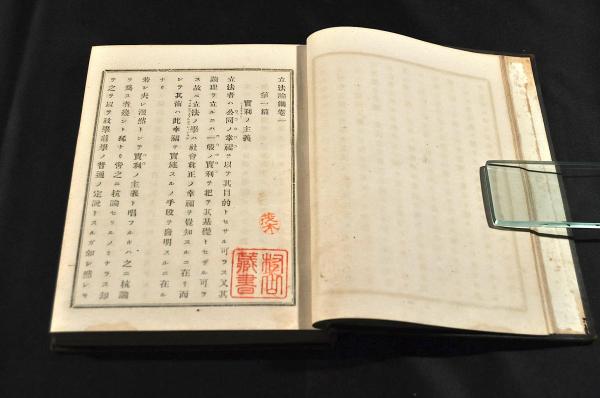 立法論綱卷一
第一篇
實利ノ主義
立法者ハ公同ノ幸福ヲ以テ其目的トセサル可ラス又其
論理ヲ立ルニハ一般ノ實利ヲ把テ其基礎トセザル可ラ
ス故ニ立法ノ學ハ社會眞正ノ幸福ヲ覺知スルニ在リ而
シテ其術ハ此幸福ヲ實施スルノ手段ヲ發明スルニ在ル
若シ夫レ漫然トシテ實利ノ主義ト唱フル ハ之ニ抗論
ヲ爲ス者幾ント稀ナリ啻之ニ抗論セ ルノミナラス却
テ之ヲ以テ政學 學ノ普通ノ定説トスルガ如シ然レ
藏書